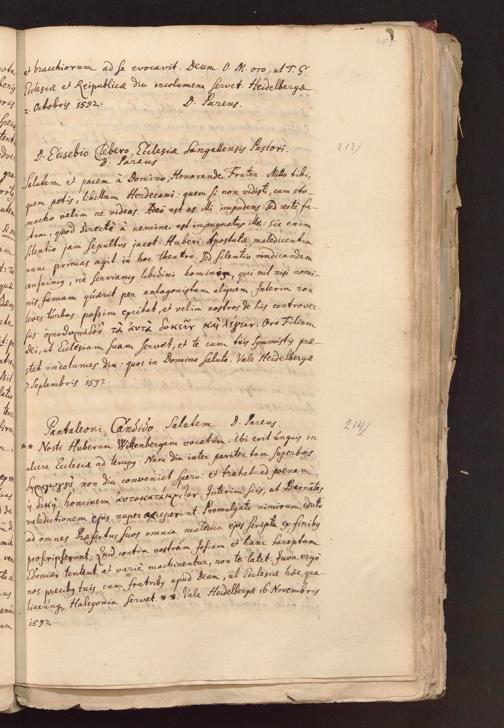 et bracchiorum ad se evocavit. Deum O. M. oro, ut T. G.
Ecclesiæ et Reipublicæ diu incolumem servet. Heidelbergæ
2. Octobris 1592. D. Pareus.
213)
D. Eusebio Clebero, Ecclesiæ Sangallensis Pastori.
D. Pareus
Salutem et pacem à Domino, Honorande Frater. Mitto tibi,
quem petis, libellum Herdesiani: quem si non vidisti, cum sto-
macho velim ne videas. Adeo est os illi impudens. Id recti fa-
ctum, quod directè à nemine est impugnatus ille: sic enim
silentio jam sepultus jacet. Huberi Apostatæ maledicentia
nunc primas agit in hoc theatro. Id silentio vindicandam
censuimus, nè serviamus libidini hominis, qui nil nisi nomi-
nis famam quærit per antagonistam aliquem. Interim non
leves turbas passim excitat, et velim nostros de his controver-
siis τὰ αὐτὰ δοκεῖν καὶ λέγειν. Oro Filium
Dei, ut Ecclesiam suam servet, et te cum tuis Symmistis præ-
stet incolumes diu: quos in Domino saluto. Vale Heidelbergæ
7. Septembris 1592.
214)
Pantaleoni Candido Salutem D. Pareus.
** Nosti Huberum Wittenbergam vocatum. Ubi erit unguis in
ulcere Ecclesiæ ad tempus. Nam diu inter pariter tam superbos
non diu conveniet spero: et trahet ad poenam
hominem αὐτοκατάκριτον. Interim scis, ut Bernates
valedictionem ejus nuper exceperint. Promulgato nimirum edicto
ad omnes Præfectos suos omnia novitia ejus scripta ex finibus
proscripserunt. Quid contra nostram fossam et hanc Sareptam
Edoniæ tentent et variè machinentur, non te latet. Juva ergò
nos precibus tuis, cum fratribus apud Deum, ut Ecclesiæ hæc qua-
liacunque Halcyonia servet. ** Vale Heidelbergæ 16 Novembris
1592.